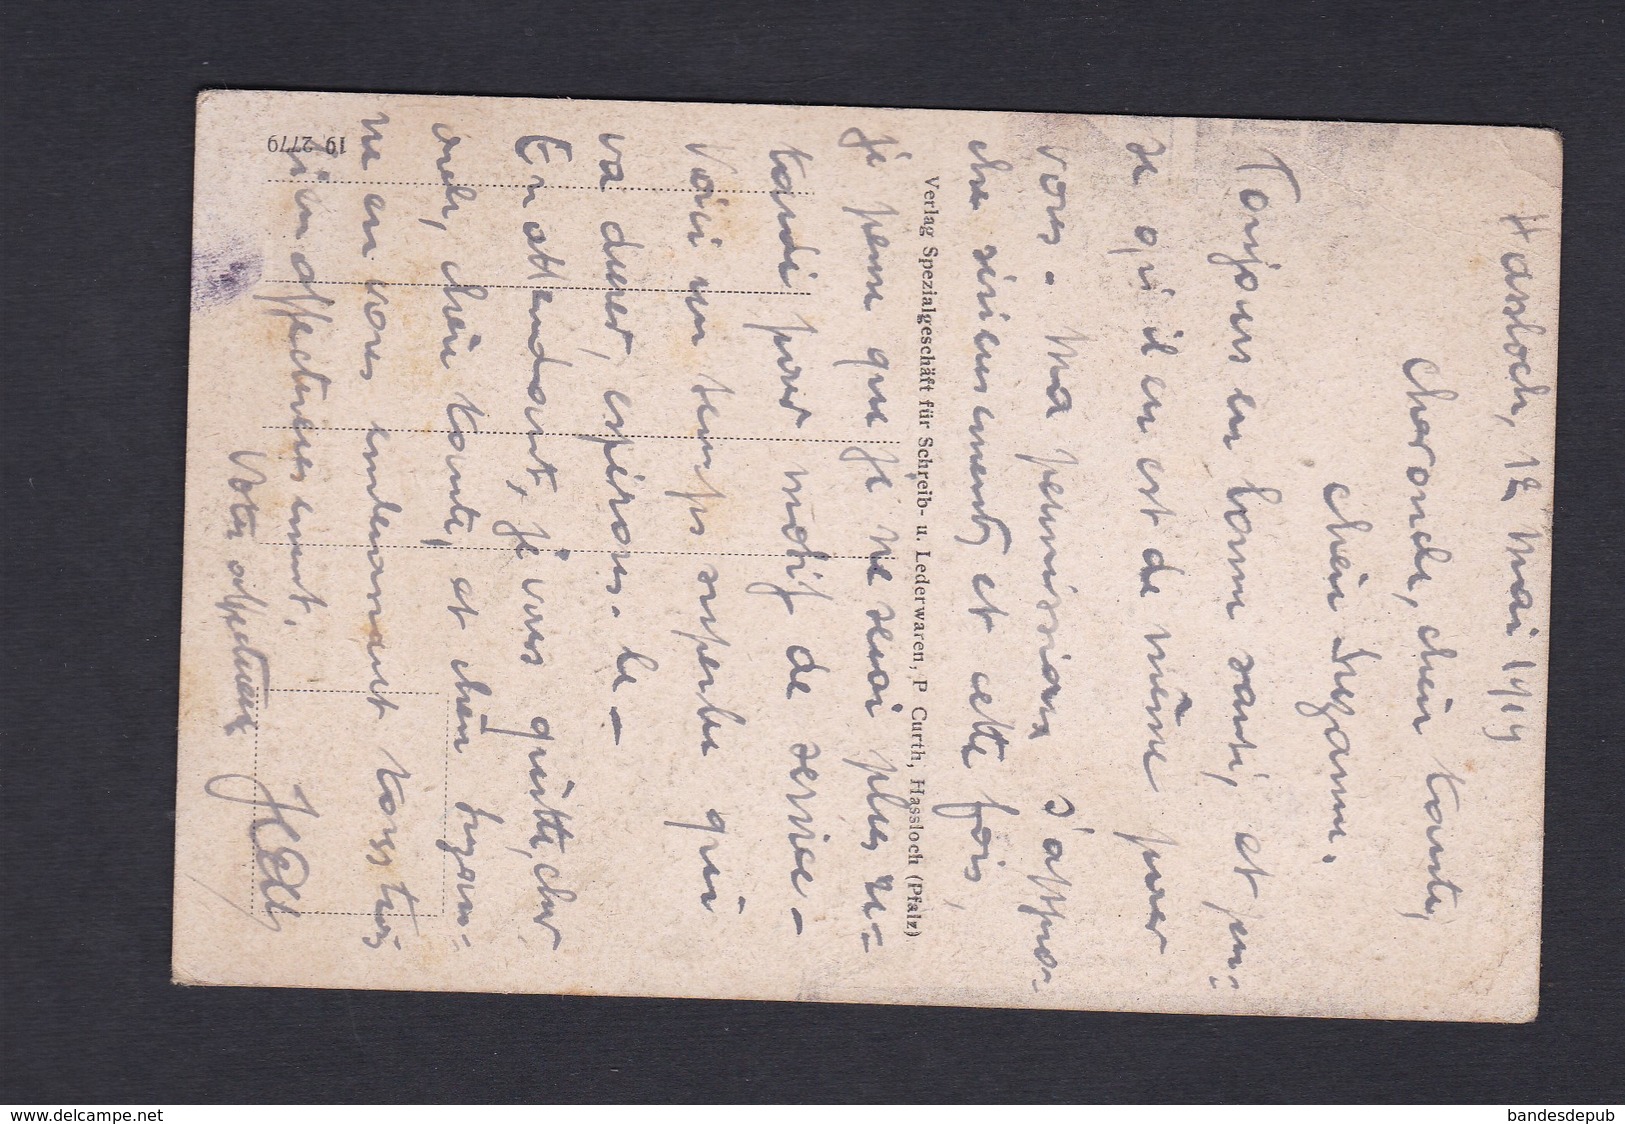 Hassloch, 12 Mai 1919
Cher oncle, chère tante,
chère Suzanne.
Toujours en bonne santé, et pen-
se qu'il en est de même pour
vous. Ma permission s'appro-
che sérieusement, et cette fois,
je pense que je ne serai plus re-
tardé pour motif de service -
Voici un temps superbe qui
va durer, espérons-le -
En attendant, je vous quitte, cher
oncle, chère tante, et chère Suzan-
ne en vous embrassant tous trois
bien affectueusement.
Votre affectueux
Verlag Spezialgeschäft für Schreib- u. Lederwaren, P. Curth, Hassloch (Pfalz)
19 2779
www.delcampe.net
bandesdepub